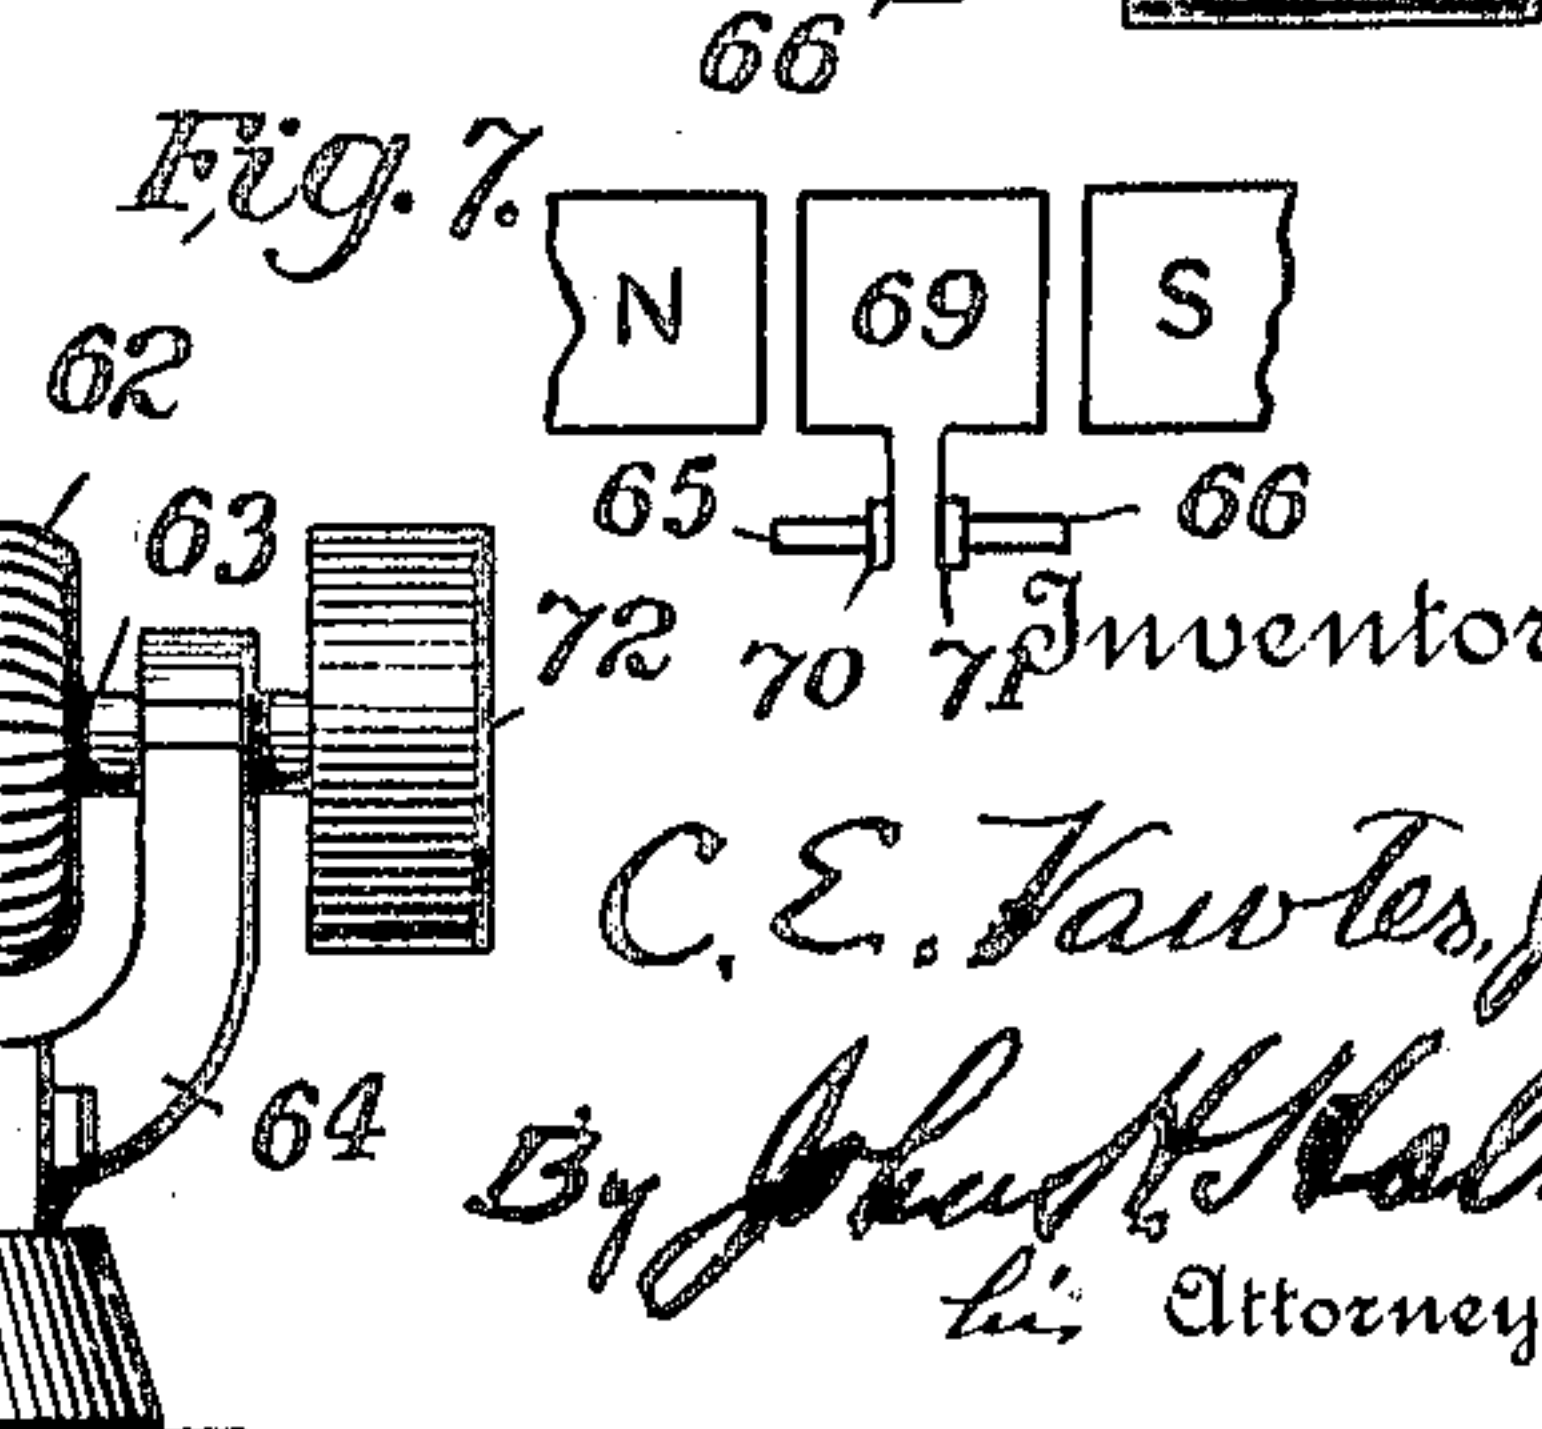 66
Fig. 7.
N 69 S
62
65 66
63
72 70 71 Inventor
C. E. Vawter, J
64
By John H.
his Attorney